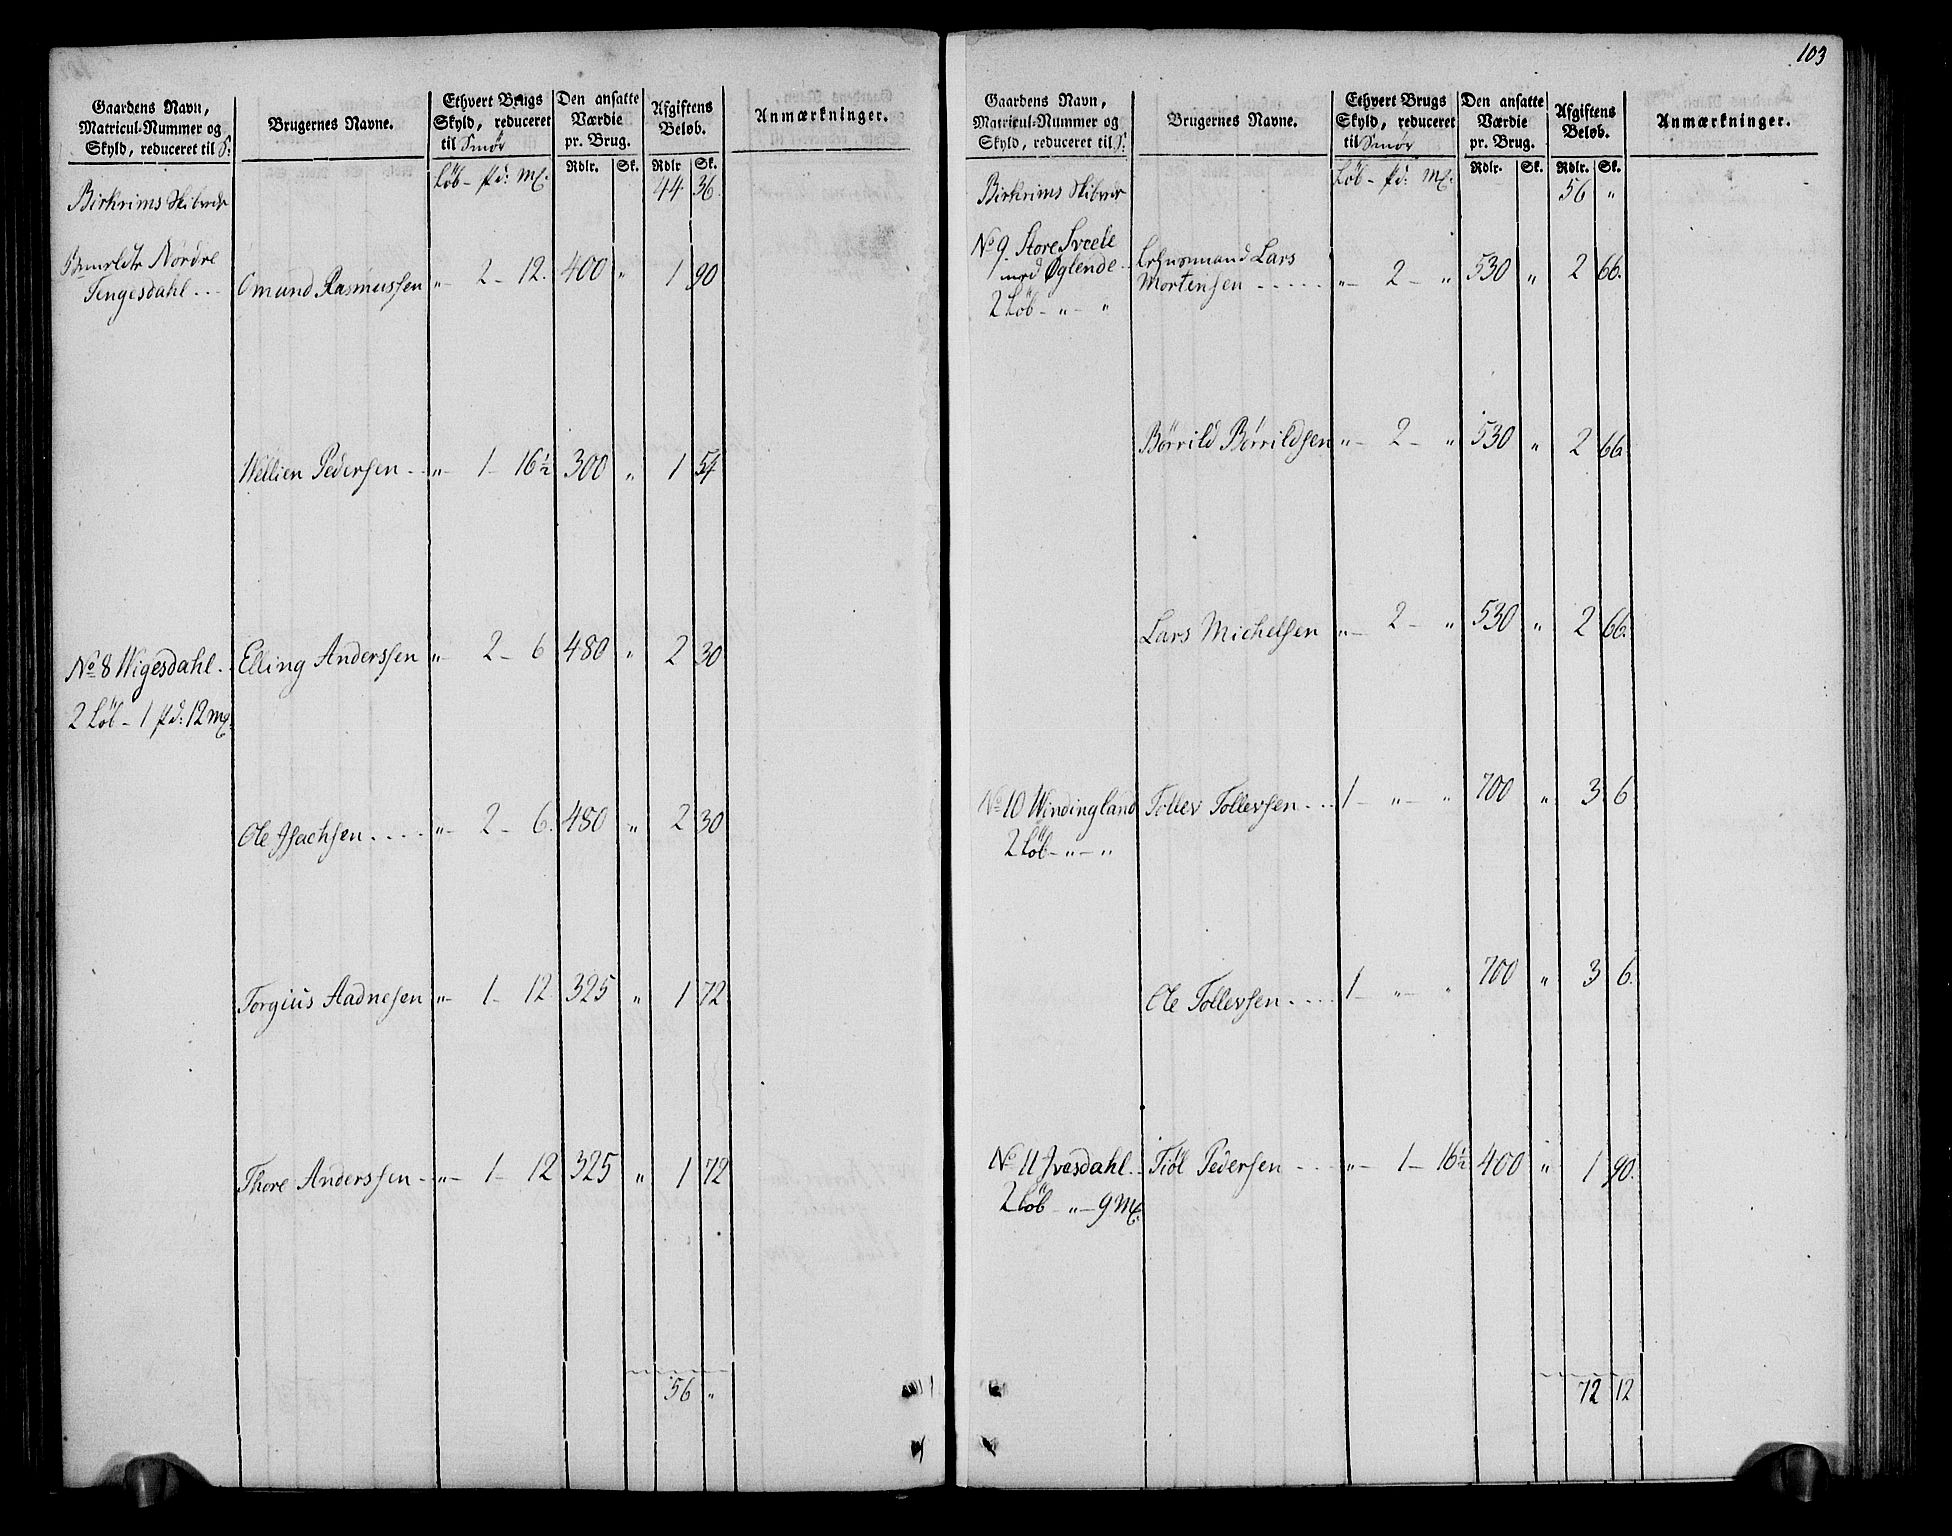 Gaardens Navn,
Matricul-Nummer og
Skyld, reduceret til S:
Brugernes Navne.
Ethvert Brugs
Skyld, reduceret
til Smör
Den ansatte
Værdie
pr. Brug.
Afgiftens
Beløb.
Anmærkninger.
Rdlr. Sk. Rdlr Sk.
Löb - pd: mk.
Birkrims Skibrede 44 36.
Nordre
Tengesdahl... Omund Rasmussen „ - 2 - 12. 400 „ 1 90
Wellien Pedersen .. „ - 1 - 16½ 300 „ 1 54
No 8 Wigesdahl. Elling Anderssen „ - 2 - 6 480 „ 2 30
2 Löb - 1 pd: 12 mk.
Ole Isachsen .... „ - 2 - 6. 480 „ 2 30
Torgius Aadnesen „ - 1 - 12 325 „ 1 72
Thore Anderssen - „ - 1 - 12 325 „ 1 72
56 „
103
Gaardens Navn,
Matricul-Nummer og
Skyld, reduceret til S:
Brugernes Navne.
Ethvert Brugs
Skyld, reduceret
til Smör
Den ansatte
Værdie
pr. Brug.
Afgiftens
Beløb.
Anmærkninger.
Rdlr. Sk. Rdlr. Sk.
Löb - pd: mk.
Birkrims Skibrede 56 „
No 9. Store Svele
med Øglende .. Lehnsmand Lars
Mortensen ..... „ - 2 - „ 530 „ 2 66.
2 Löb - „ - „
Börrild Börrildsen „ - 2 - „ 530 „ 2 66.
Lars Michelsen „ - 2 - „ 530 „ 2 66.
No 10 Windingland Tollev Tollevsen ... 1 - „ - „ 700 „ 3 6
2 Löb - „ - „
Ole Tollevsen .... 1 - „ - „ 700 „ 3 6.
No 11 Ivesdahl .. Tiöl Pedersen ... „ - 1 - 16½ 400 „ 1 90.
2 Löb - „ - 9 mk.
72 12